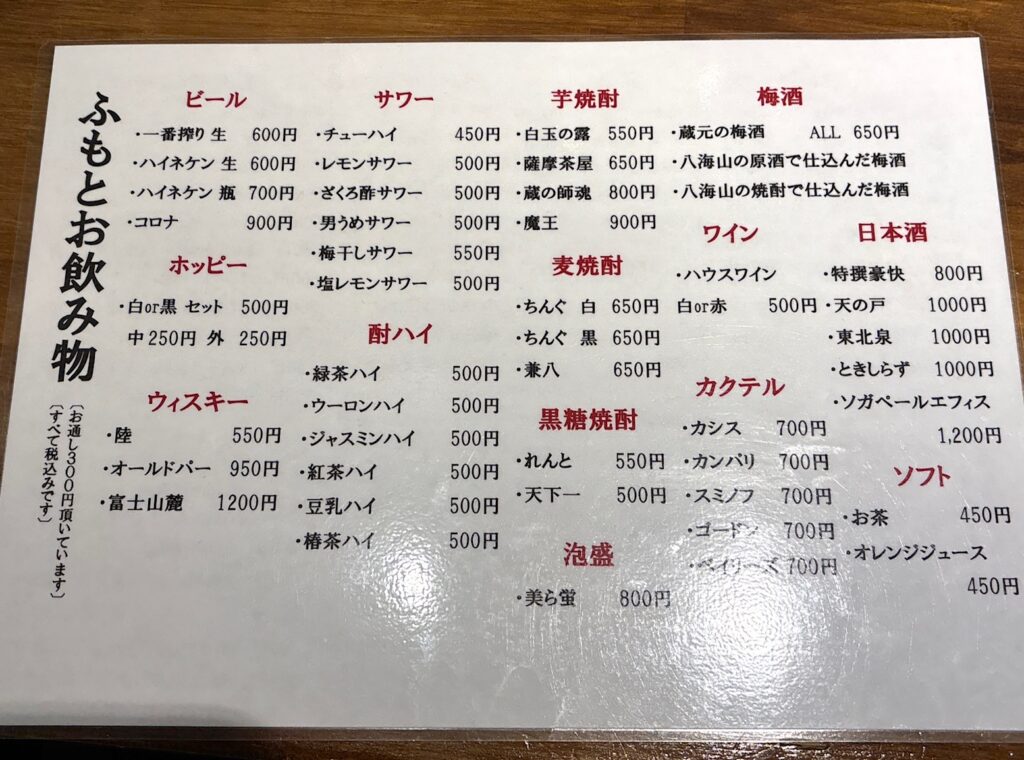 ふもとお飲み物
〔お通し300円頂いています〕
〔すべて税込みです〕
ビール
・一番搾り 生 600円
・ハイネケン 生 600円
・ハイネケン 瓶 700円
・コロナ 900円
ホッピー
・白or黒 セット 500円
中 250円 外 250円
ウィスキー
・陸 550円
・オールドパー 950円
・富士山麓 1200円
サワー
・チューハイ 450円
・レモンサワー 500円
・ざくろ酢サワー 500円
・男うめサワー 500円
・梅干しサワー 550円
・塩レモンサワー 500円
酎ハイ
・緑茶ハイ 500円
・ウーロンハイ 500円
・ジャスミンハイ 500円
・紅茶ハイ 500円
・豆乳ハイ 500円
・椿茶ハイ 500円
芋焼酎
・白玉の露 550円
・薩摩茶屋 650円
・蔵の師魂 800円
・魔王 900円
麦焼酎
・ちんぐ 白 650円
・ちんぐ 黒 650円
・兼八 650円
黒糖焼酎
・れんと 550円
・天下一 500円
泡盛
・美ら蛍 800円
梅酒
・蔵元の梅酒 ALL 650円
・八海山の原酒で仕込んだ梅酒
・八海山の焼酎で仕込んだ梅酒
ワイン
・ハウスワイン
白or赤 500円
カクテル
・カシス 700円
・カンパリ 700円
・スミノフ 700円
・ゴードン 700円
・ベイリーズ 700円
日本酒
・特撰豪快 800円
・天の戸 1000円
・東北泉 1000円
・ときしらず 1000円
・ソガペールエフィス
1,200円
ソフト
・お茶 450円
・オレンジジュース
450円